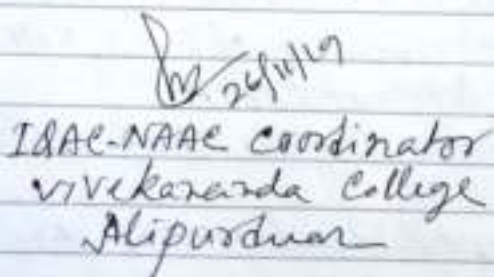 26/11/19
IQAC-NAAC Coordinator
Vivekananda College
Alipurduar